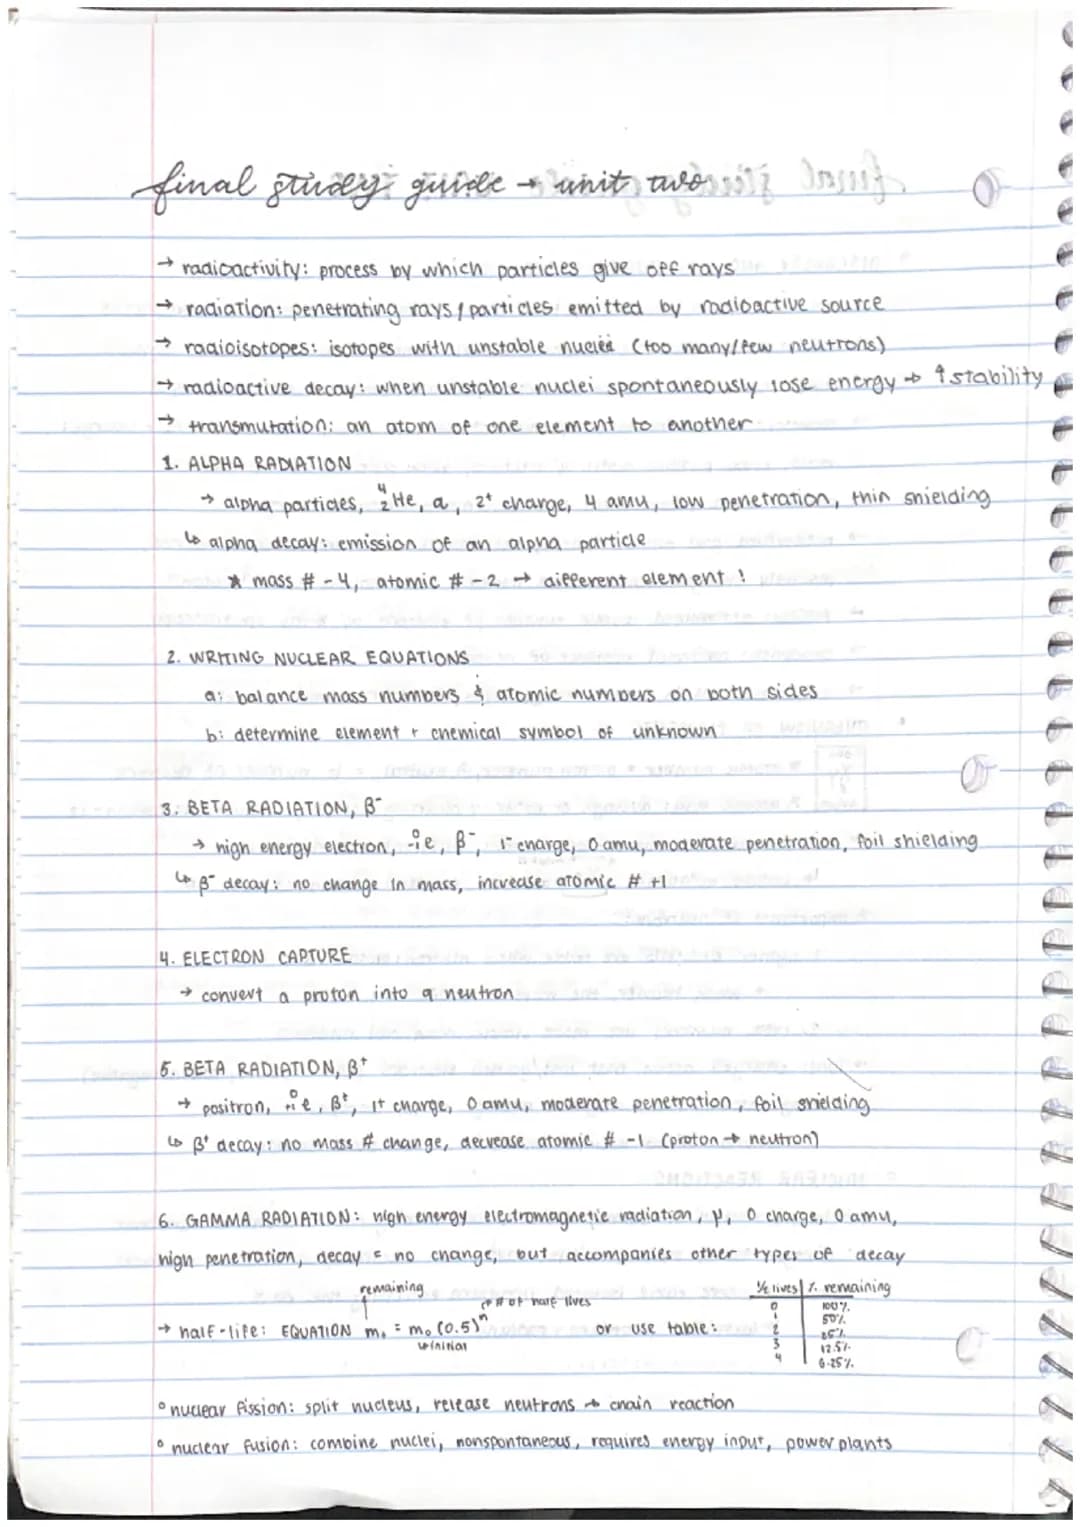 final study guide → unit two
→ radioactivity: process by which particles give off rays
→ radiation: penetrating rays / particles emitted by radioactive source
→ radioisotopes: isotopes with unstable nuclei (too many/few neutrons)
→ radioactive decay: when unstable nuclei spontaneously lose energy → ↑stability
→ transmutation: an atom of one element to another
1. ALPHA RADIATION
→ alpha particles, ⁴₂He, α, 2⁺ charge, 4 amu, low penetration, thin shielding
↳ alpha decay: emission of an alpha particle
* mass # -4, atomic # -2 → different element!
2. WRITING NUCLEAR EQUATIONS
a: balance mass numbers & atomic numbers on both sides
b: determine element + chemical symbol of unknown
3. BETA RADIATION, β⁻
→ high energy electron, ⁰₋₁e, β⁻, 1⁻ charge, 0 amu, moderate penetration, foil shielding
↳ β⁻ decay: no change in mass, increase atomic # +1
4. ELECTRON CAPTURE
→ convert a proton into a neutron
5. BETA RADIATION, β⁺
→ positron, ⁰₊₁e, β⁺, 1⁺ charge, 0 amu, moderate penetration, foil shielding
↳ β⁺ decay: no mass # change, decrease atomic # -1 (proton → neutron)
6. GAMMA RADIATION: high energy electromagnetic radiation, γ, 0 charge, 0 amu,
high penetration, decay = no change, but accompanies other types of decay
remaining
# of half lives
→ half-life: EQUATION m₁ = m₀ (0.5)ⁿ or use table:
initial
½ lives | % remaining
0 100%
1 50%
2 25%
3 12.5%
4 6.25%
° nuclear fission: split nucleus, release neutrons → chain reaction
° nuclear fusion: combine nuclei, nonspontaneous, requires energy input, power plants